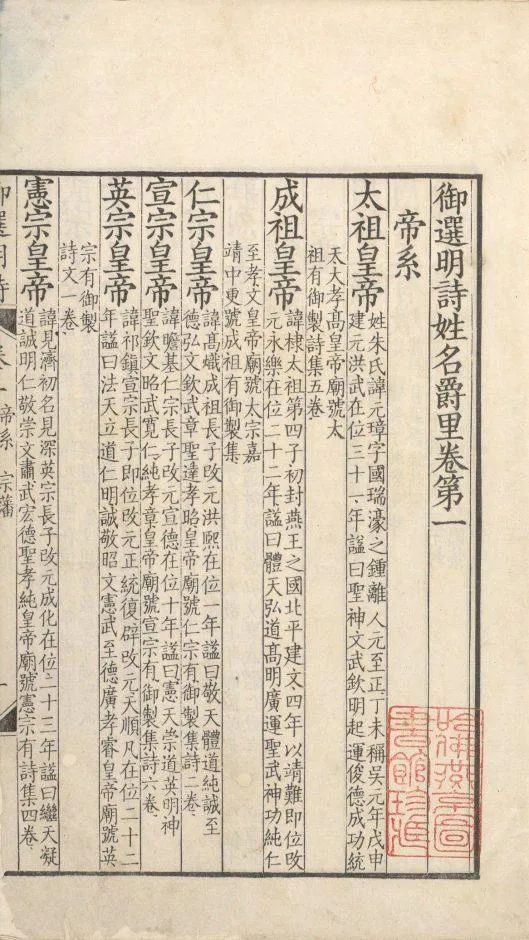 御選明詩姓名爵里卷第一
帝系
太祖皇帝
姓朱氏諱元璋字國瑞濠之鍾離人元至正丁未稱吳元年戊申
建元洪武在位三十一年諡曰聖神文武欽明啟運俊德成功統
天大孝髙皇帝廟號太
祖有御製詩集五卷
成祖皇帝
諱棣太祖第四子初封燕王之國北平建文四年以靖難即位改
元永樂在位二十二年諡曰體天弘道髙明廣運聖武神功純仁
至孝文皇帝廟號太宗嘉
靖中更號成祖有御製集
仁宗皇帝
諱髙熾成祖長子改元洪熙在位一年諡曰敬天體道純誠至
德弘文欽武章聖達孝昭皇帝廟號仁宗有御製集詩二卷
宣宗皇帝
諱瞻基仁宗長子改元宣德在位十年諡曰憲天崇道英明神
聖欽文昭武寛仁純孝章皇帝廟號宣宗有御製集詩六卷
英宗皇帝
諱祁鎮宣宗長子即位改元正統復辟改元天順凡在位二十二
年諡曰法天立道仁明誠敬昭文憲武至德廣孝睿皇帝廟號英
宗有御製
詩文一卷
憲宗皇帝
諱見濟初名見深英宗長子改元成化在位二十三年諡曰繼天凝
道誠明仁敬崇文肅武宏德聖孝純皇帝廟號憲宗有詩集四卷
御選明詩
帝系 宗藩